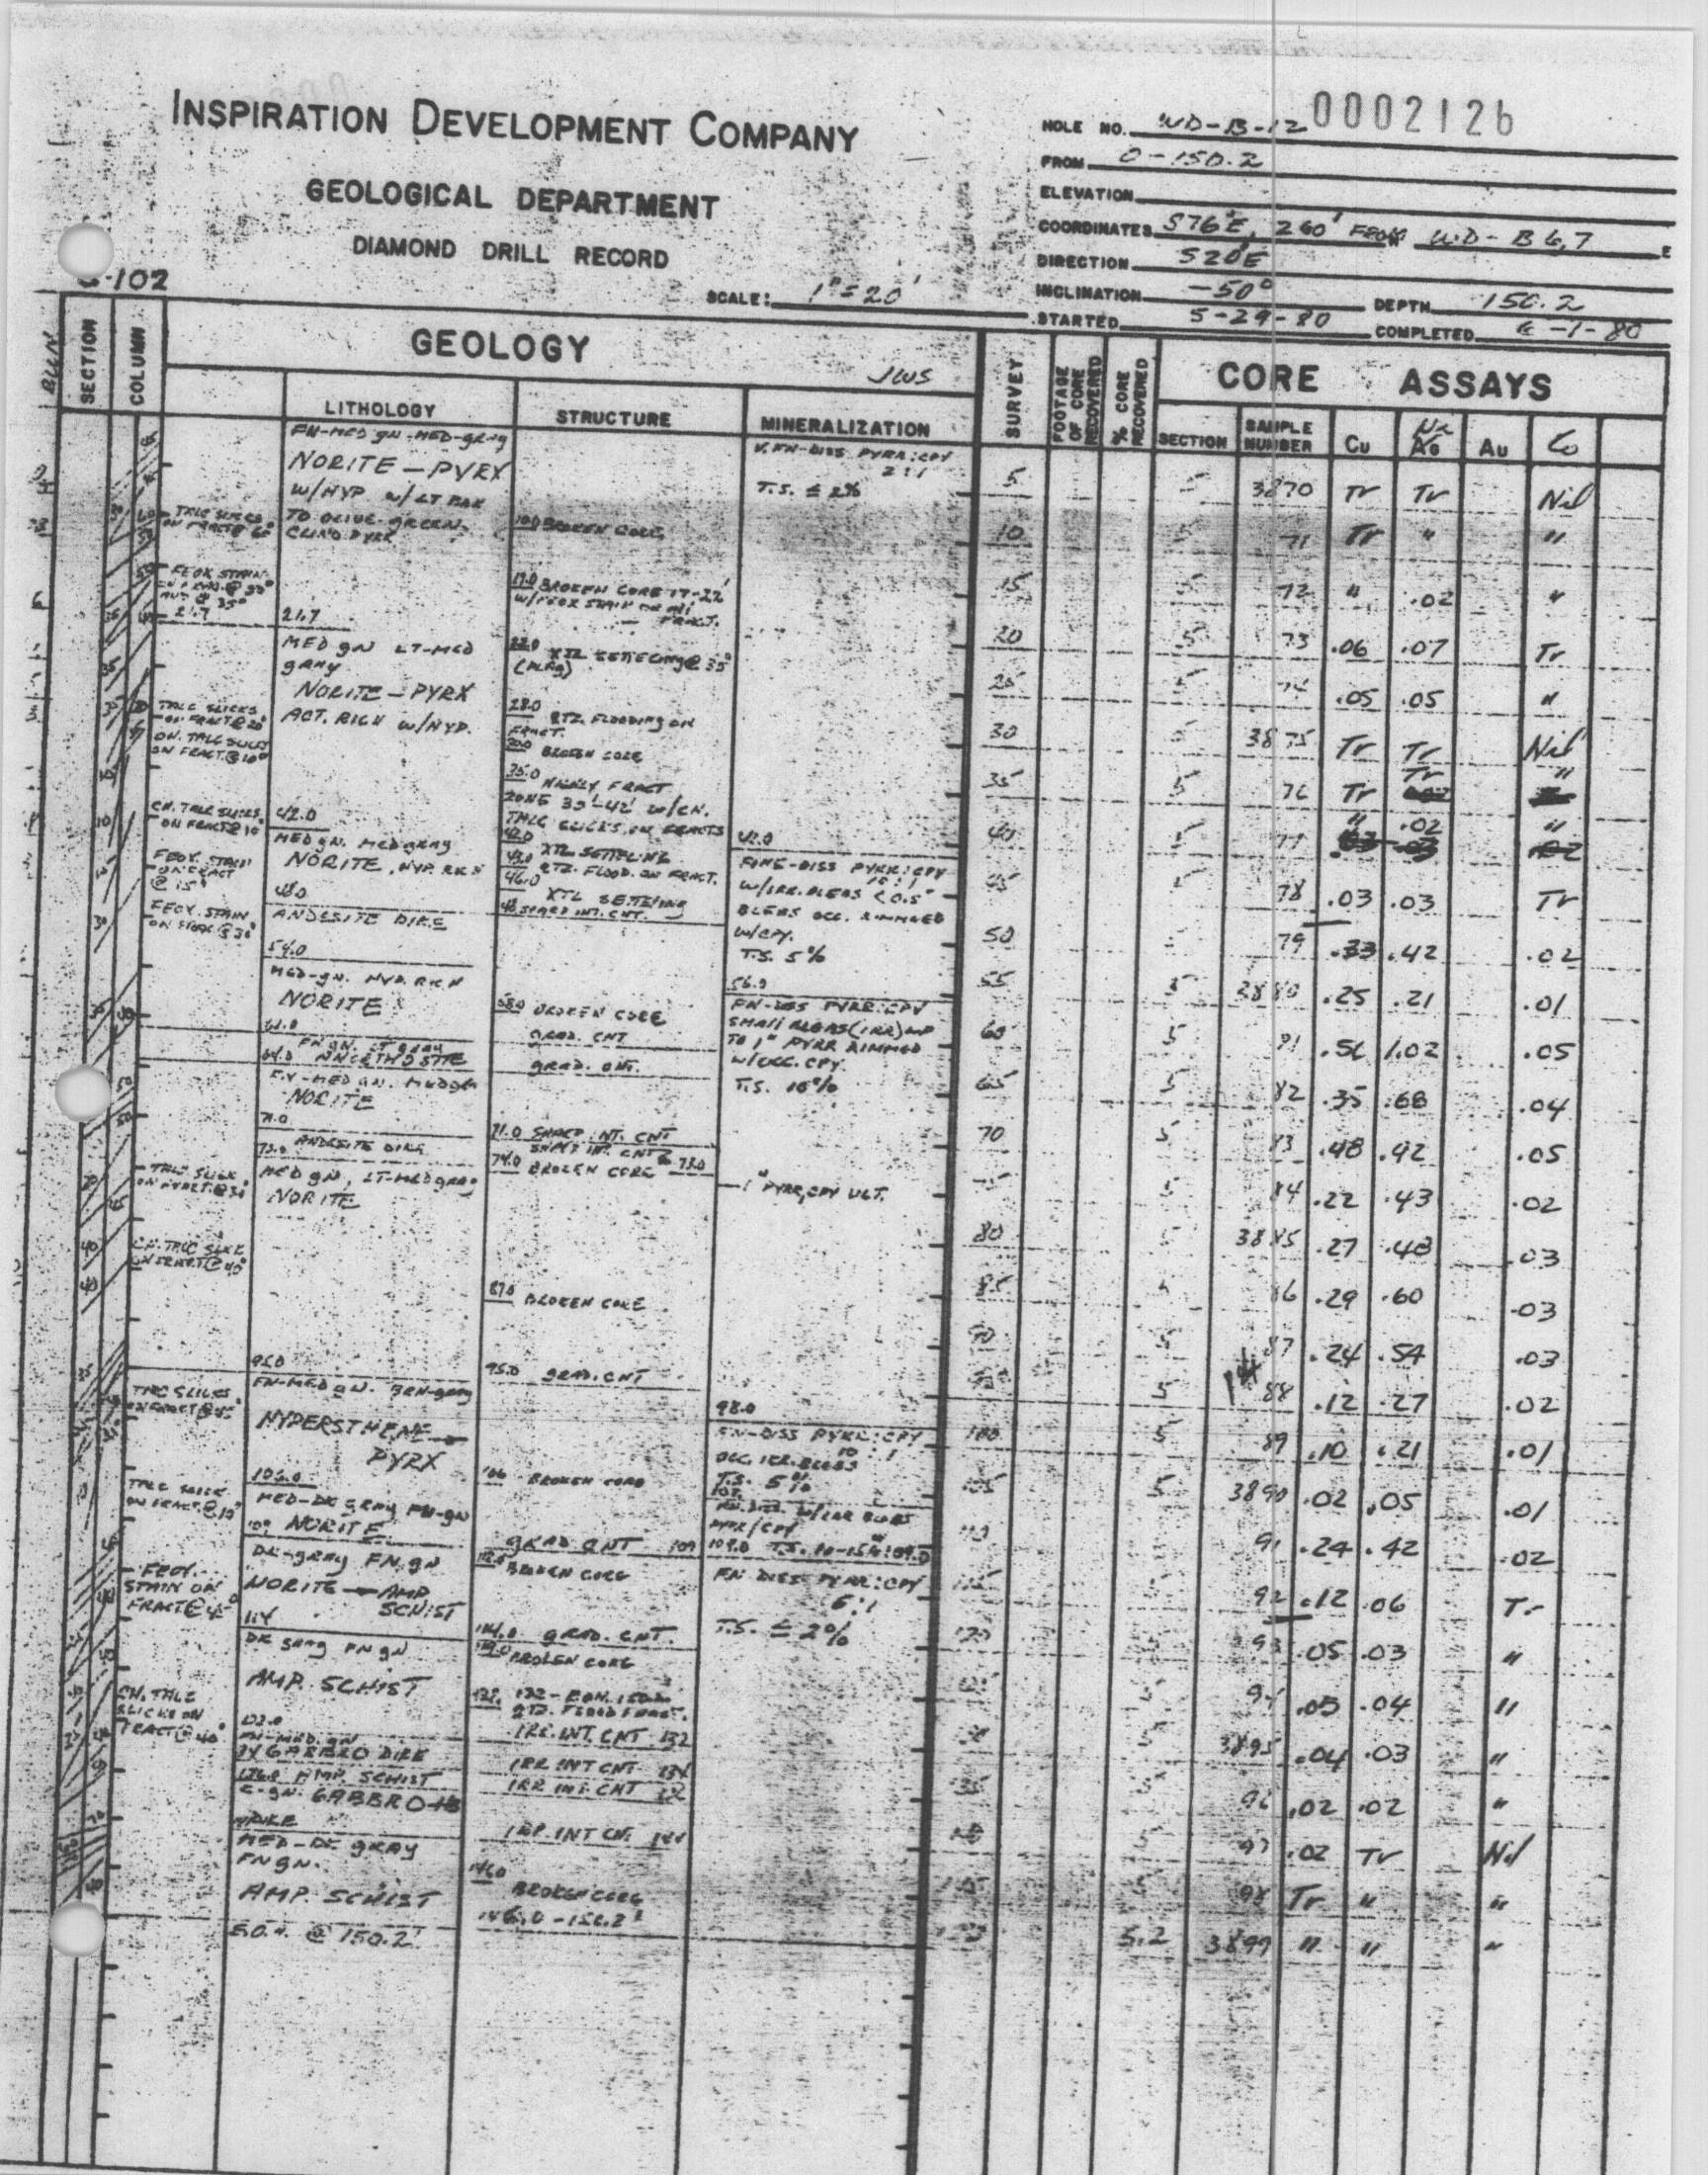 INSPIRATION DEVELOPMENT COMPANY
GEOLOGICAL DEPARTMENT
DIAMOND DRILL RECORD
-102
SCALE: 1"=20'
0002126
HOLE NO. WD-B-12
FROM 0-150.2
ELEVATION
COORDINATES S76°E, 260' FROM WD-B6,7 E
DIRECTION S20°E
INCLINATION -50° DEPTH 150.2
STARTED 5-29-80 COMPLETED 6-1-80
SECTION COLUMN GEOLOGY JWS SURVEY FOOTAGE OF CORE RECOVERED % CORE RECOVERED CORE ASSAYS
LITHOLOGY STRUCTURE MINERALIZATION SECTION SAMPLE NUMBER Cu Ni Au Co
FN-MED gN-MED-gray
NORITE-PYRX
W/HYP w/LT
TO OLIVE-GREEN
CLINO PYRX
21.7
MED gN LT-MED
gray
NORITE-PYRX
ACT. RICH W/HYP.
42.0
MED gN. MED gray
NORITE, HYP. RICH
48.0
ANDESITE DIKE
54.0
MED-gN. HYP. RICH
NORITE
61.0
FN gN. LT gray
64.0 ANORTHOSITE
FN-MED gN. MED gr
NORITE
71.0
73.0 ANDESITE DIKE
MED gN, LT-MED gray
NORITE
95.0
FN-MED gN. BRN-gray
HYPERSTHENE
PYRX
MED-DK gray FN-gN
109 NORITE
DK-gray FN gN
NORITE - AMP
SCHIST
114
DK gray FN gN
AMP. SCHIST
FN-MED. gN
GABBRO DIKE
AMP. SCHIST
C-gN. GABBRO
DIKE
MED-DK gray
FN gN.
AMP. SCHIST
E.O.H. @ 150.2'
TALC SLICKS
ON FRACT @ 60°
FEOX STAIN
21.7
TALC SLICKS
ON FRACT @ 20°
CH. TALC SLICKS
ON FRACT @ 10°
CH. TALC SLICKS
ON FRACT @ 10°
FEOX. STAIN
ON FRACT
@ 15°
FEOX. STAIN
ON FRACT @ 30°
TALC SLICK
ON FRACT @ 30°
CH-TALC SLICK
ON FRACT @ 40°
TALC SLICKS
ON FRACT @ 45°
TALC SLICK
ON FRACT @ 10°
FEOX.
STAIN ON
FRACT @ 45°
CH. TALC
SLICKS ON
FRACT @ 40°
10.0 BROKEN CORE
17.0 BROKEN CORE 17-22'
W/FEOX STAIN ON
FRACT.
22.0 XTL SETTLING @ 35°
(PLAG)
28.0
QTZ. FLOODING ON
FRACT.
30.0 BROKEN CORE
35.0 HIGHLY FRACT
ZONE 35'-42' W/CH.
TALC SLICKS ON FRACTS
42.0 XTL SETTLING
43.0 QTZ. FLOOD. ON FRACT.
46.0 XTL SETTLING
48 SHARP INT. CNT.
58.0 BROKEN CORE
GRAD. CNT
GRAD. CNT.
71.0 SHARP INT. CNT
SHARP INT. CNT 73.0
74.0 BROKEN CORE
87.0 BROKEN CORE
95.0 GRAD. CNT
106 BROKEN CORE
GRAD CNT 109
BROKEN CORE
114.0 GRAD. CNT.
BROKEN CORE
QTZ. FLOOD FRACT.
IRR. INT. CNT 132
IRR INT CNT 134
IRR INT. CNT
IRR. INT CNT 144
146.0
BROKEN CORE
146.0-150.2'
V. FN-DISS PYRR:CPY
2:1
T.S. ≤ 2%
42.0
FINE-DISS PYRR:CPY
10:1
W/IRR. BLEBS <0.5"
BLEBS OCC. RIMMED
W/CPY.
T.S. 5%
56.0
FN-DISS PYRR:CPY
SMALL BLEBS (IRR) UP
TO 1" PYRR RIMMED
W/OCC. CPY.
T.S. 10%
1" PYRR, CPY VLT.
98.0
FN-DISS PYRR:CPY
10:1
OCC. IRR. BLEBS
T.S. 5%
FN. DISS. W/IRR BLEBS
PYRR/CPY
109.0 T.S. 10-15% 109.0
FN DISS PYRR:CPY
6:1
T.S. ≤ 2%
5 5 3870 Tr Tr Nil
10 5 71 Tr " "
15 5 72 " .02 "
20 5 73 .06 .07 Tr
25 5 74 .05 .05 "
30 5 3875 Tr Tr Nil
35 5 76 Tr Tr "
40 5 77 " .02 "
45 5 78 .03 .03 Tr
50 5 79 .33 .42 .02
55 5 3880 .25 .21 .01
60 5 81 .56 1.02 .05
65 5 82 .35 .68 .04
70 5 83 .48 .92 .05
5 84 .22 .43 .02
80 5 3885 .27 .48 .03
85 5 86 .29 .60 .03
90 5 87 .24 .54 .03
5 88 .12 .27 .02
100 5 89 .10 .21 .01
105 5 3890 .02 .05 .01
110 5 91 .24 .42 .02
5 92 .12 .06 Tr
120 5 93 .05 .03 "
5 94 .05 .04 "
5 3895 .04 .03 "
5 96 .02 .02 "
5 97 .02 Tr Nil
5 98 Tr " "
5.2 3899 " " "